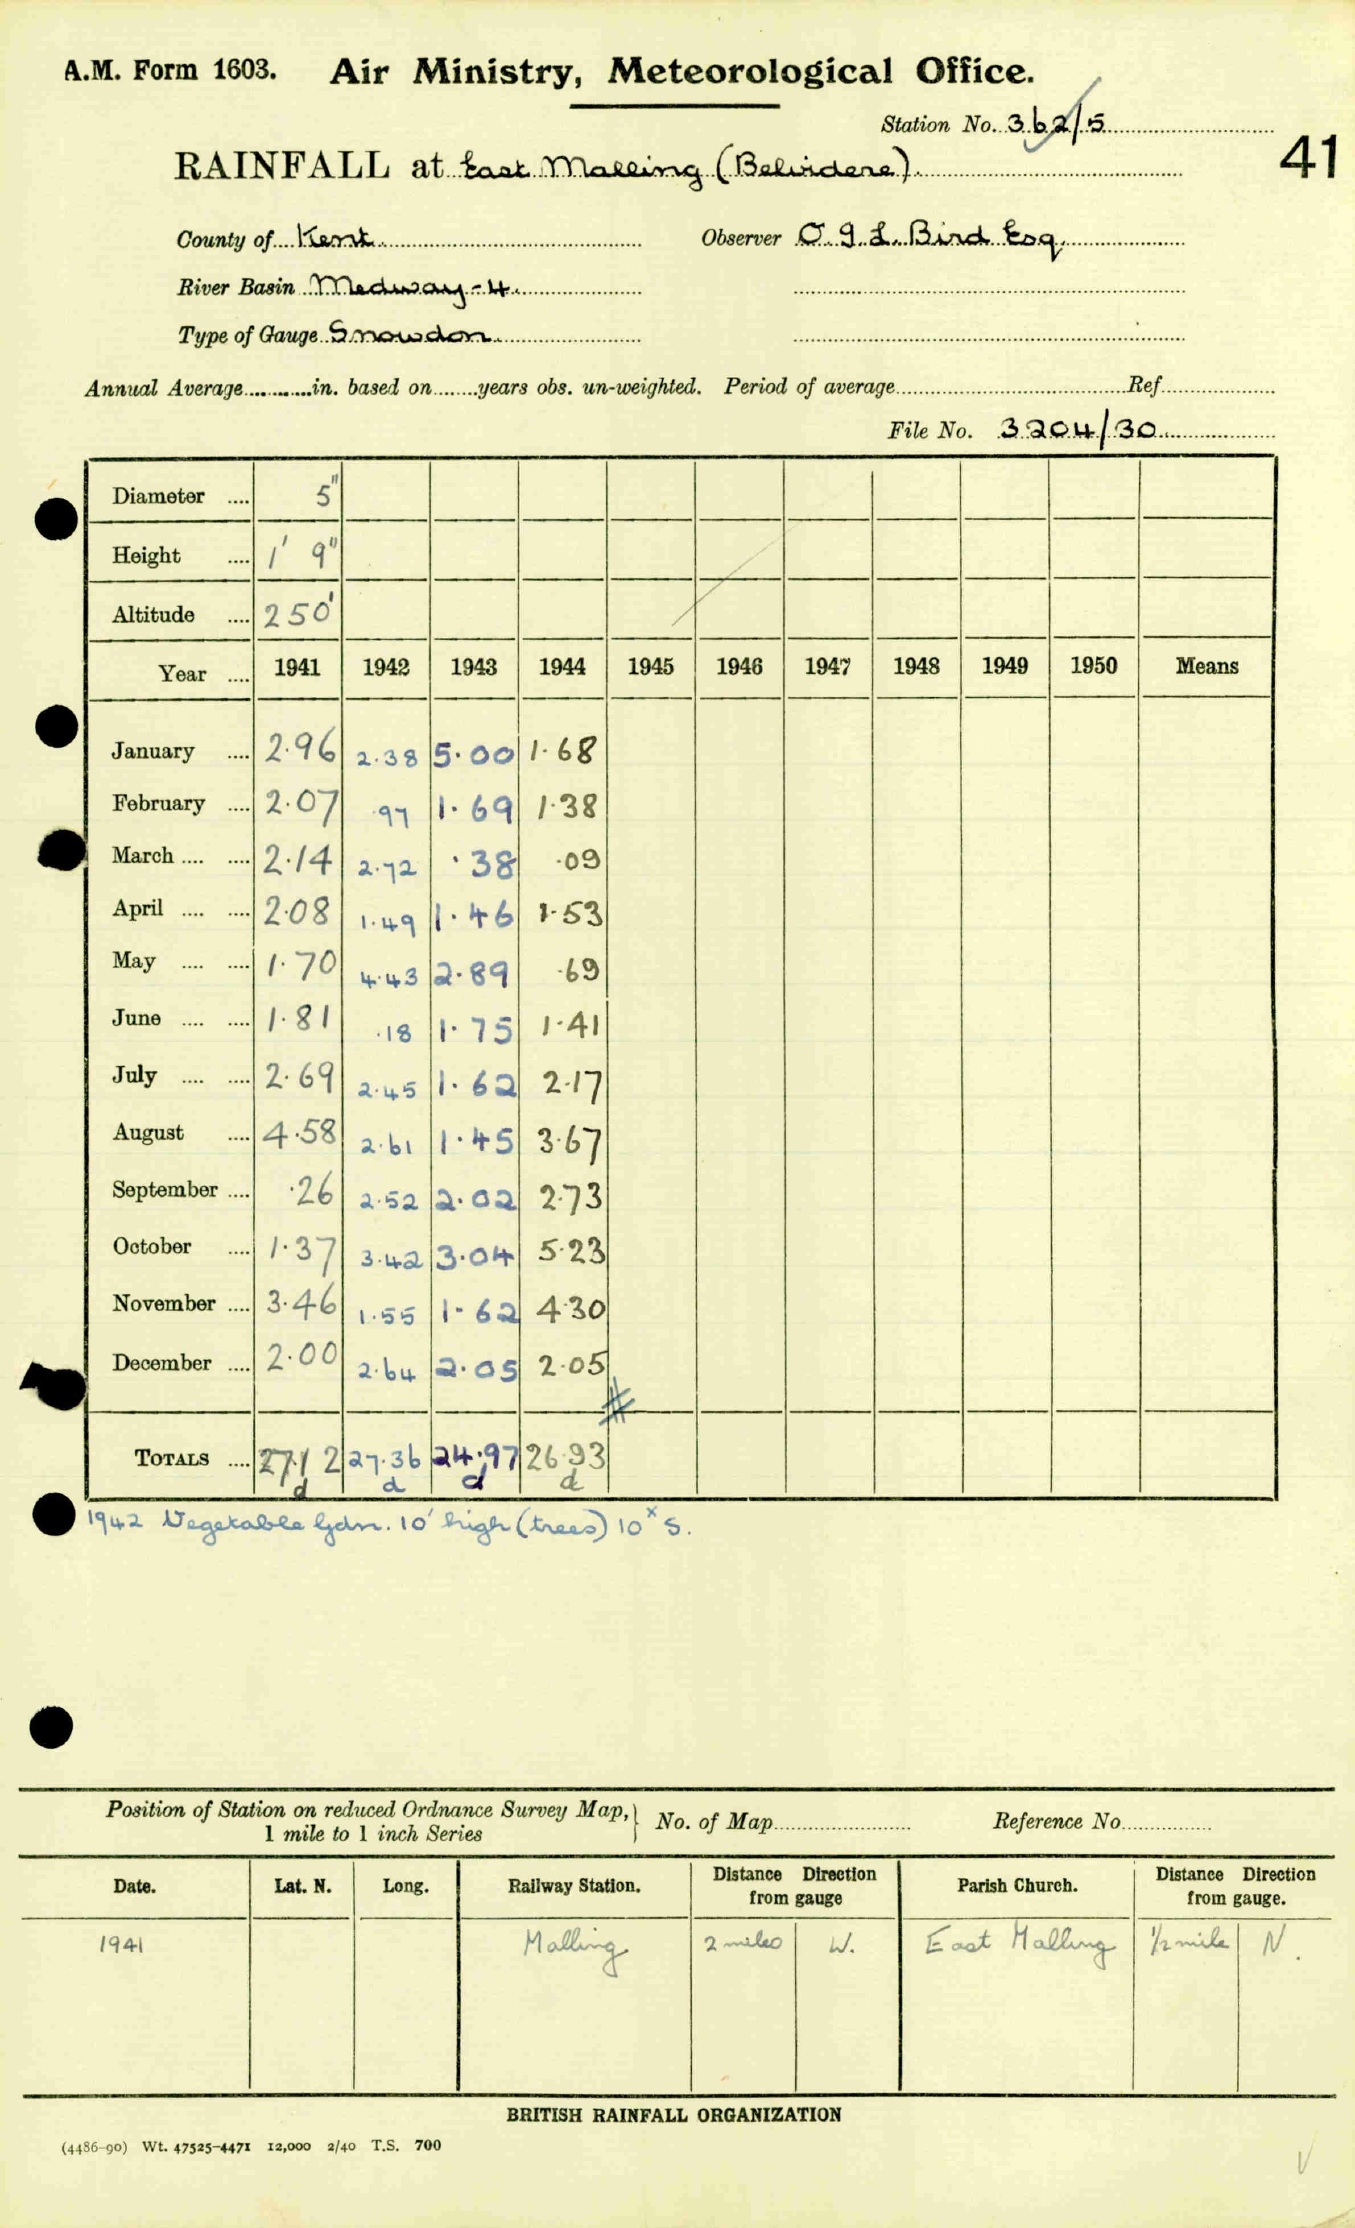 A.M. Form 1603. Air Ministry, Meteorological Office.
Station No. 362/5
41
RAINFALL at East Malling (Belvidere)
County of Kent Observer O. G. L. Bird Esq.
River Basin Medway - 4
Type of Gauge Snowdon
Annual Average............in. based on........years obs. un-weighted. Period of average Ref.
File No. 3204/30
Diameter .... 5"
Height .... 1' 9"
Altitude .... 250'
Year .... 1941 1942 1943 1944 1945 1946 1947 1948 1949 1950 Means
January .... 2.96 2.38 5.00 1.68
February .... 2.07 .97 1.69 1.38
March .... .... 2.14 2.72 .38 .09
April .... .... 2.08 1.49 1.46 1.53
May .... .... 1.70 4.43 2.89 .69
June .... .... 1.81 .18 1.75 1.41
July .... .... 2.69 2.45 1.62 2.17
August .... 4.58 2.61 1.45 3.67
September .... .26 2.52 2.02 2.73
October .... 1.37 3.42 3.04 5.23
November .... 3.46 1.55 1.62 4.30
December .... 2.00 2.64 2.05 2.05
#
TOTALS .... 27.12 27.36 24.97 26.93
d d d d
1942 Vegetable Gdn. 10' high (trees) 10x S.
Position of Station on reduced Ordnance Survey Map, } No. of Map Reference No.
1 mile to 1 inch Series
Date. Lat. N. Long. Railway Station. Distance Direction from gauge Parish Church. Distance Direction from gauge.
1941 Malling 2 miles W. East Malling 1/2 mile N.
BRITISH RAINFALL ORGANIZATION
(4486-90) Wt. 47525-4471 12,000 2/40 T.S. 700